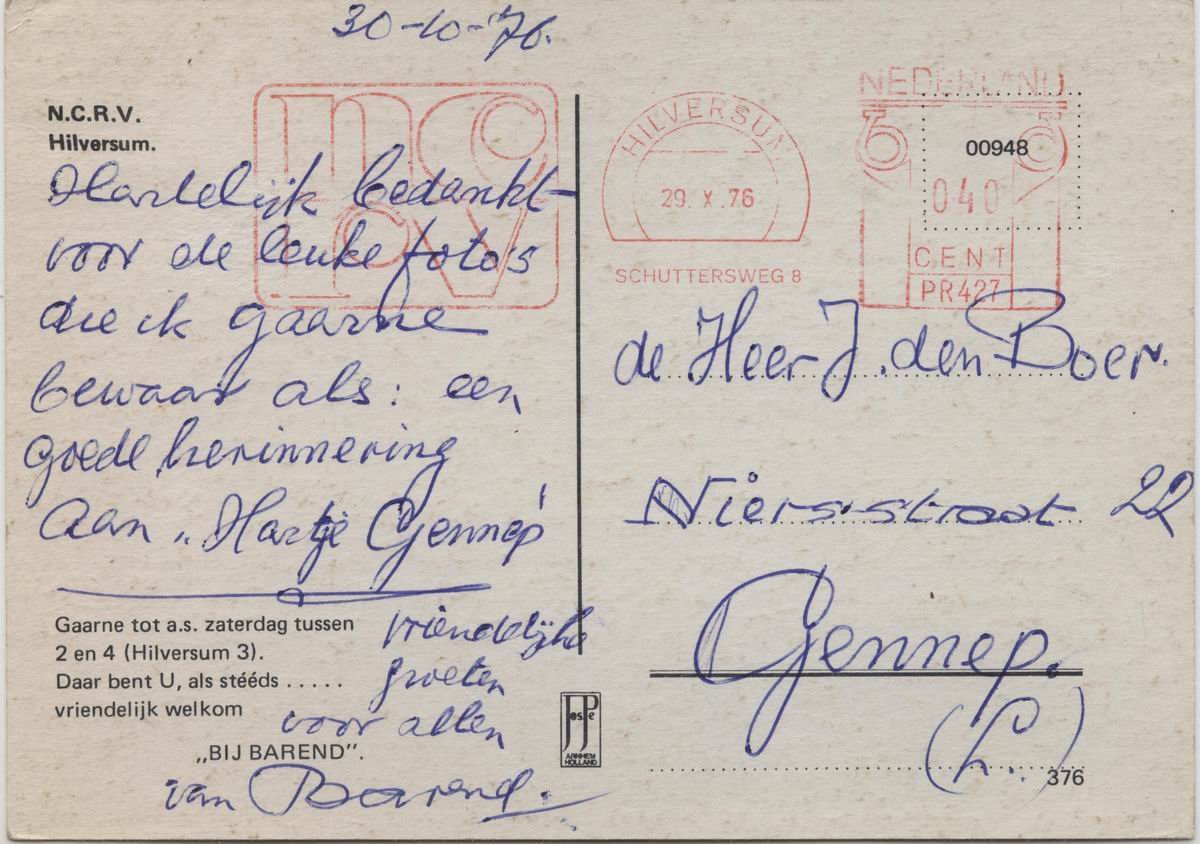 30-10-76.
N.C.R.V.
Hilversum.
ncrv
HILVERSUM
29. X .76
SCHUTTERSWEG 8
NEDERLAND
00948
040
CENT
PR427
Hartelijk bedankt
voor de leuke foto's
die ik gaarne
bewaar als: een
goede herinnering
aan „Hartje Gennep"
Gaarne tot a.s. zaterdag tussen
2 en 4 (Hilversum 3).
Daar bent U, als stééds .....
vriendelijk welkom
„BIJ BAREND".
vriendelijke
groeten
voor allen
van Barend.
de Heer J. den Boer.
Niers-straat 22
Gennep.
(L.)
JosPe
ARNHEM
HOLLAND
376